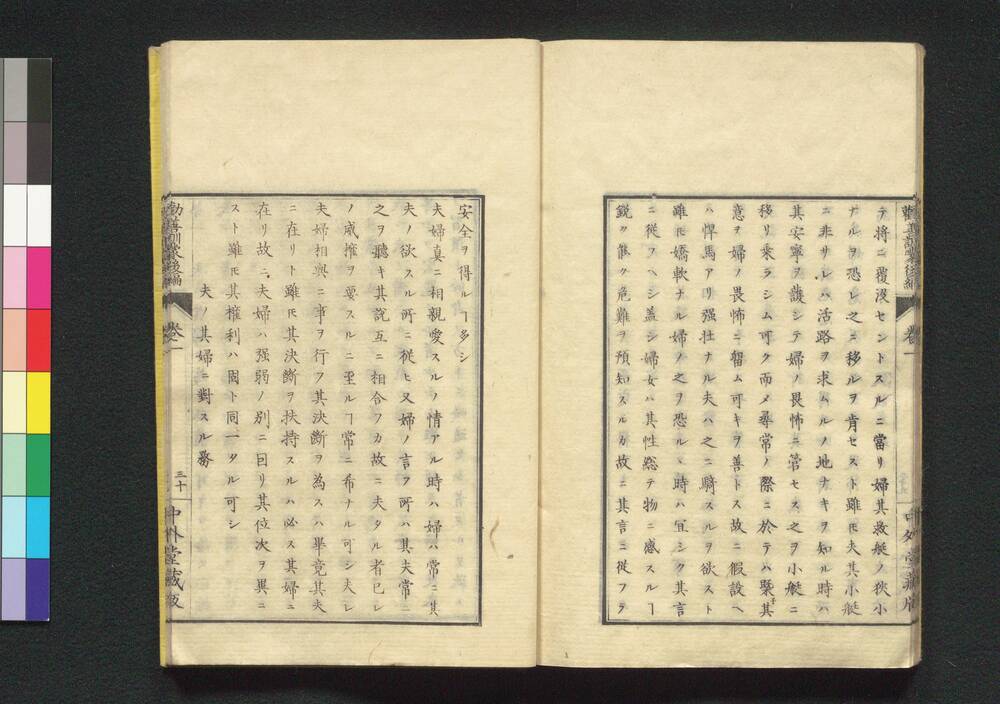 テ將ニ覆沒セントスルニ當リ婦其救艇ノ狹小
ナルヲ恐レ之ニ移ルヲ肯セスト雖モ夫其小艇
ニ非サレハ活路ヲ求ムルノ地ナキヲ知ル時ハ
其安寧ヲ護シテ婦ノ畏怖ニ管セス之ヲ小艇ニ
移リ乘ラシム可ク而メ尋常ノ際ニ於テハ槩子其
意ヲ婦ノ畏怖ニ留ム可キヲ善トス故ニ假設ヘ
ハ悍馬アリ强壮ナル夫ハ之ニ騎スルヲ欲スト
雖モ嬌軟ナル婦ノ之ヲ恐ルヽ時ハ宜シク其言
ニ從フヘシ盖シ婦女ハ其性總テ物ニ感スルヿ
銳ク能ク危難ヲ預知スルカ故ニ其言ニ從フテ
勸善訓蒙後編
卷一
中外堂藏版
安全ヲ得ルヿ多シ
夫婦眞ニ相親愛スルノ情アル時ハ婦ハ常ニ其
夫ノ欲スル所ニ從ヒ又婦ノ言フ所ハ其夫常ニ
之ヲ聽キ其說互ニ相合フカ故ニ夫タル者已レ
ノ威權ヲ要スルニ至ルヿ常ニ希ナル可シ夫レ
夫婦相與ニ事ヲ行フ其決斷ヲ為スハ畢竟其夫
ニ在リト雖モ其決斷ヲ扶持スルハ必ス其婦ニ
在リ故ニ夫婦ハ强弱ノ別ニ因リ其位次ヲ異ニ
スト雖モ其權利ハ固ト同一タル可シ
夫ノ其婦ニ對スル務
勸善訓蒙後編
卷一
三十
中外堂藏版